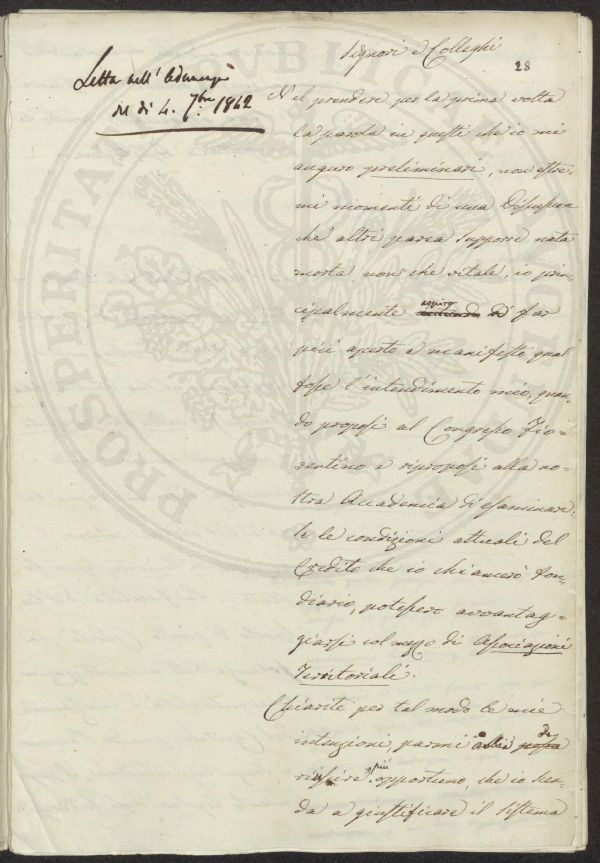 Signori e Colleghi
28
Letta nell'Adunanza
del dì 4. 7bre 1842
Nel prendere per la prima volta
la parola in questi che io mi
auguro preliminari, non estre-
mi momenti di una Discussione
che altri parea supporre nata
morta non che vitale, io prin-
cipalmente aspiro di far
più aperto e manifesto qual
fosse l'intendimento mio, quan-
do proposi al Congresso Fio-
rentino e riproposi alla no-
stra Accademia di esaminare.
se le condizioni attuali del
Credito che io chiamerò fon-
diario, potessero avvantag-
giarsi col mezzo di Associazioni
Territoriali.
Chiarite per tal modo le mie
intenzioni, parmi
più
opportuno, che io scen-
da a giustificare il sistema
PROSPERITATI PUBLICAE